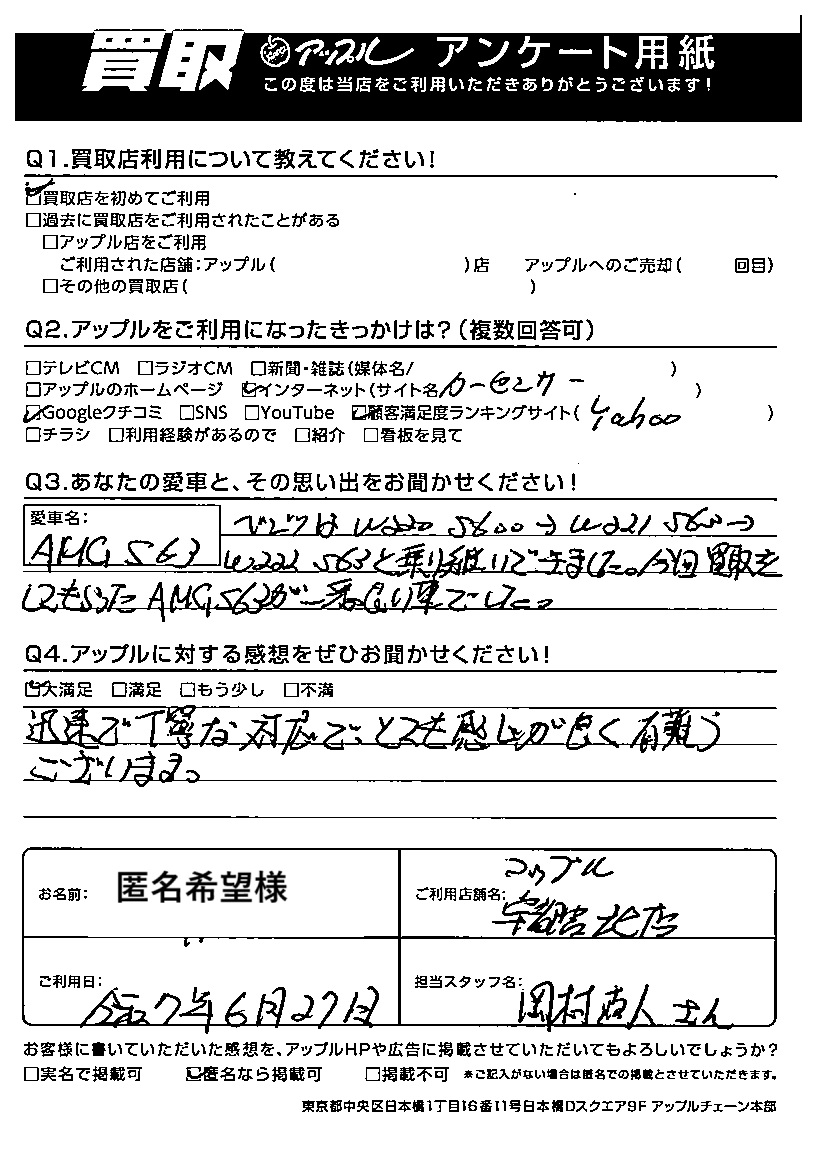 買取 アップル アンケート用紙
この度は当店をご利用いただきありがとうございます!
Q1.買取店利用について教えてください!
☑買取店を初めてご利用
□過去に買取店をご利用されたことがある
□アップル店をご利用
ご利用された店舗:アップル( )店 アップルへのご売却( 回目)
□その他の買取店( )
Q2.アップルをご利用になったきっかけは?(複数回答可)
□テレビCM □ラジオCM □新聞・雑誌(媒体名/ )
□アップルのホームページ ☑インターネット(サイト名/カーセンサー )
☑Googleクチコミ □SNS □YouTube ☑顧客満足度ランキングサイト( Yahoo )
□チラシ □利用経験があるので □紹介 □看板を見て
Q3.あなたの愛車と、その思い出をお聞かせください!
愛車名:
AMG S63
W220 S600→W221 S600→
W222 S63と乗り継いできました。今回買取を
してもらったAMG S63が一番良い車でした。
Q4.アップルに対する感想をぜひお聞かせください!
☑大満足 □満足 □もう少し □不満
迅速で丁寧な対応で、とても感じが良く有難う
ございます。
お名前: 匿名希望様
ご利用店舗名: アップル
宇都宮北店
ご利用日: 令和7年6月27日
担当スタッフ名: 岡村直人さん
お客様に書いていただいた感想を、アップルHPや広告に掲載させていただいてもよろしいでしょうか?
□実名で掲載可 ☑匿名なら掲載可 □掲載不可 ※ご記入がない場合は匿名での掲載とさせていただきます。
東京都中央区日本橋1丁目16番11号日本橋Dスクエア9F アップルチェーン本部